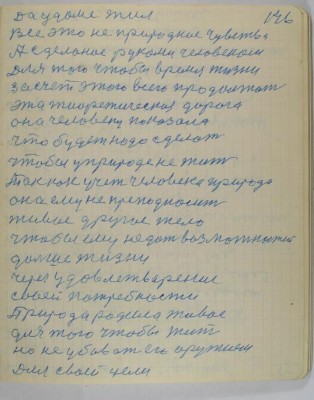 146
Да и доме жил
Все это не природное чувство
А сделаное руками человеком
Для того чтобы время жизни
за счет этого всего продолжат
эта тиоретическая дорога
она человеку показала
что будет надо сделат
чтобы и природе не жит
Так как учет человека природа
она ему не преподносит
живое другое тело
чтобы ему не дат возможностей
далше жизни
через удовлетварение
своей потребности
Природа родила живое
для того чтобы жит
но не убиват его оружием
Для своей цели